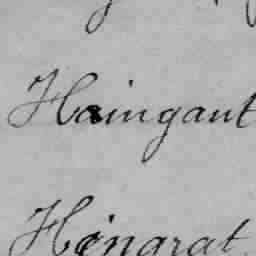 Haingant
Hingrat